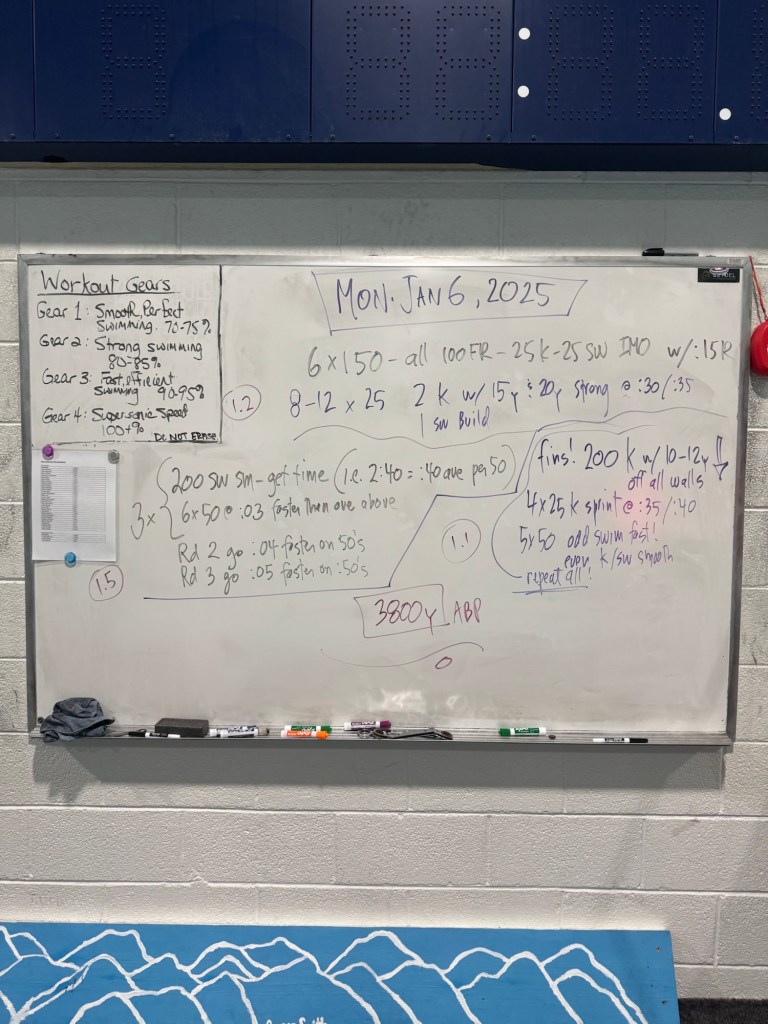 Workout Gears
Gear 1: Smooth, Perfect
Swimming. 70-75%
Gear 2: Strong swimming
80-85%
Gear 3: Fast, efficient
Swimming 90-95%
Gear 4: Supersonic Speed
100+%
DO NOT ERASE
MON. JAN 6, 2025
6x150 - all 100 FR - 25 K - 25 SW IMO w/:15R
1.2
8-12 x 25 2 K w/ 15y & 20y strong @ :30/:35
1 SW Build
3x
200 SW sm - get time (i.e. 2:40 = :40 ave per 50)
6x50 @ :03 faster than ave above
Rd 2 go :04 faster on 50's
Rd 3 go :05 faster on :50's
1.5
fins! 200 K w/ 10-12y
off all walls
4x25 K sprint @ :35/:40
5x50 odd swim fast!
even K/SW smooth
repeat all!
1.1
3800y ABP